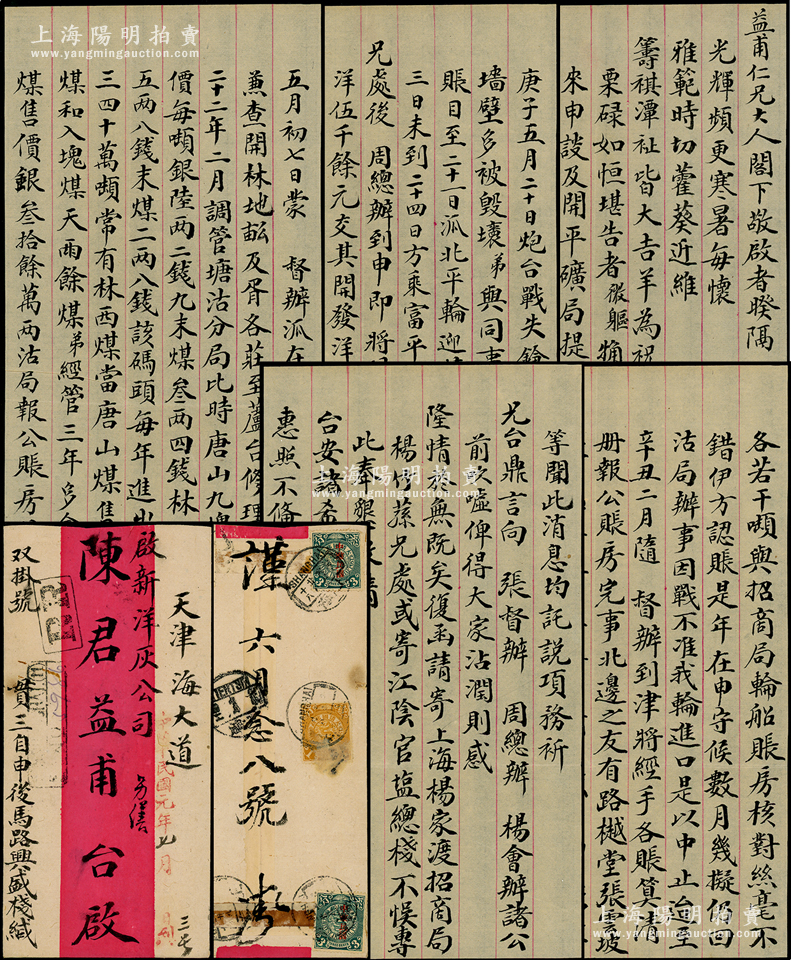 上海陽明拍賣
www.yangmingauction.com
益甫仁兄大人閣下敬啟者睽隔
光輝頻更寒暑每懷
雅範時切藿葵近維
籌祺潭祉皆大吉羊為祝
栗碌如恒堪告者
來申談及開平礦局提
庚子五月二十日炮台戰失
墻壁多被毀壞弟與同事
賬目至二十一日派北平輪迎
三日未到二十四日方乘富平
兄處後 周總辦到申即將
洋伍千餘元交其開發洋
五月初七日蒙 督辦派在
兼查開林地畝及胥各莊至蘆台修理
二十二年二月調管塘沽分局此時唐山九塊
價每噸銀陸兩二錢九末煤叁兩四錢林
五兩八錢末煤二兩八錢該碼頭每年進出
三四十萬噸常有林西煤當唐山煤售
煤和入塊煤天雨餘煤弟經管三年多
煤售價銀叁拾餘萬兩沽局報公賬房
各若干噸與招商局輪船賬房核對絲毫不
錯伊方認賬是年在申守候數月幾擬仍回
沽局辦事因戰不准我輪進口是以中止迨至
辛丑二月隨 督辦到津將經手各賬算清
冊報公賬房完事北邊之友有路樾堂張雲坡
等聞此消息均託說項務祈
兄台鼎言向 張督辦 周總辦 楊會辦諸公
前吹噓俾得大家沾潤則感
隆情於無既矣復函請寄上海楊家渡招商局
楊修蓀兄處或寄江陰官鹽總棧不悞專
此奉懇敬請
台安諸希
惠照不備
天津海大道
啟新洋灰公司
陳君益甫台啟
双掛號
賈三自申後馬路興盛棧緘
中華民國元年七月
謹 六月叁八號